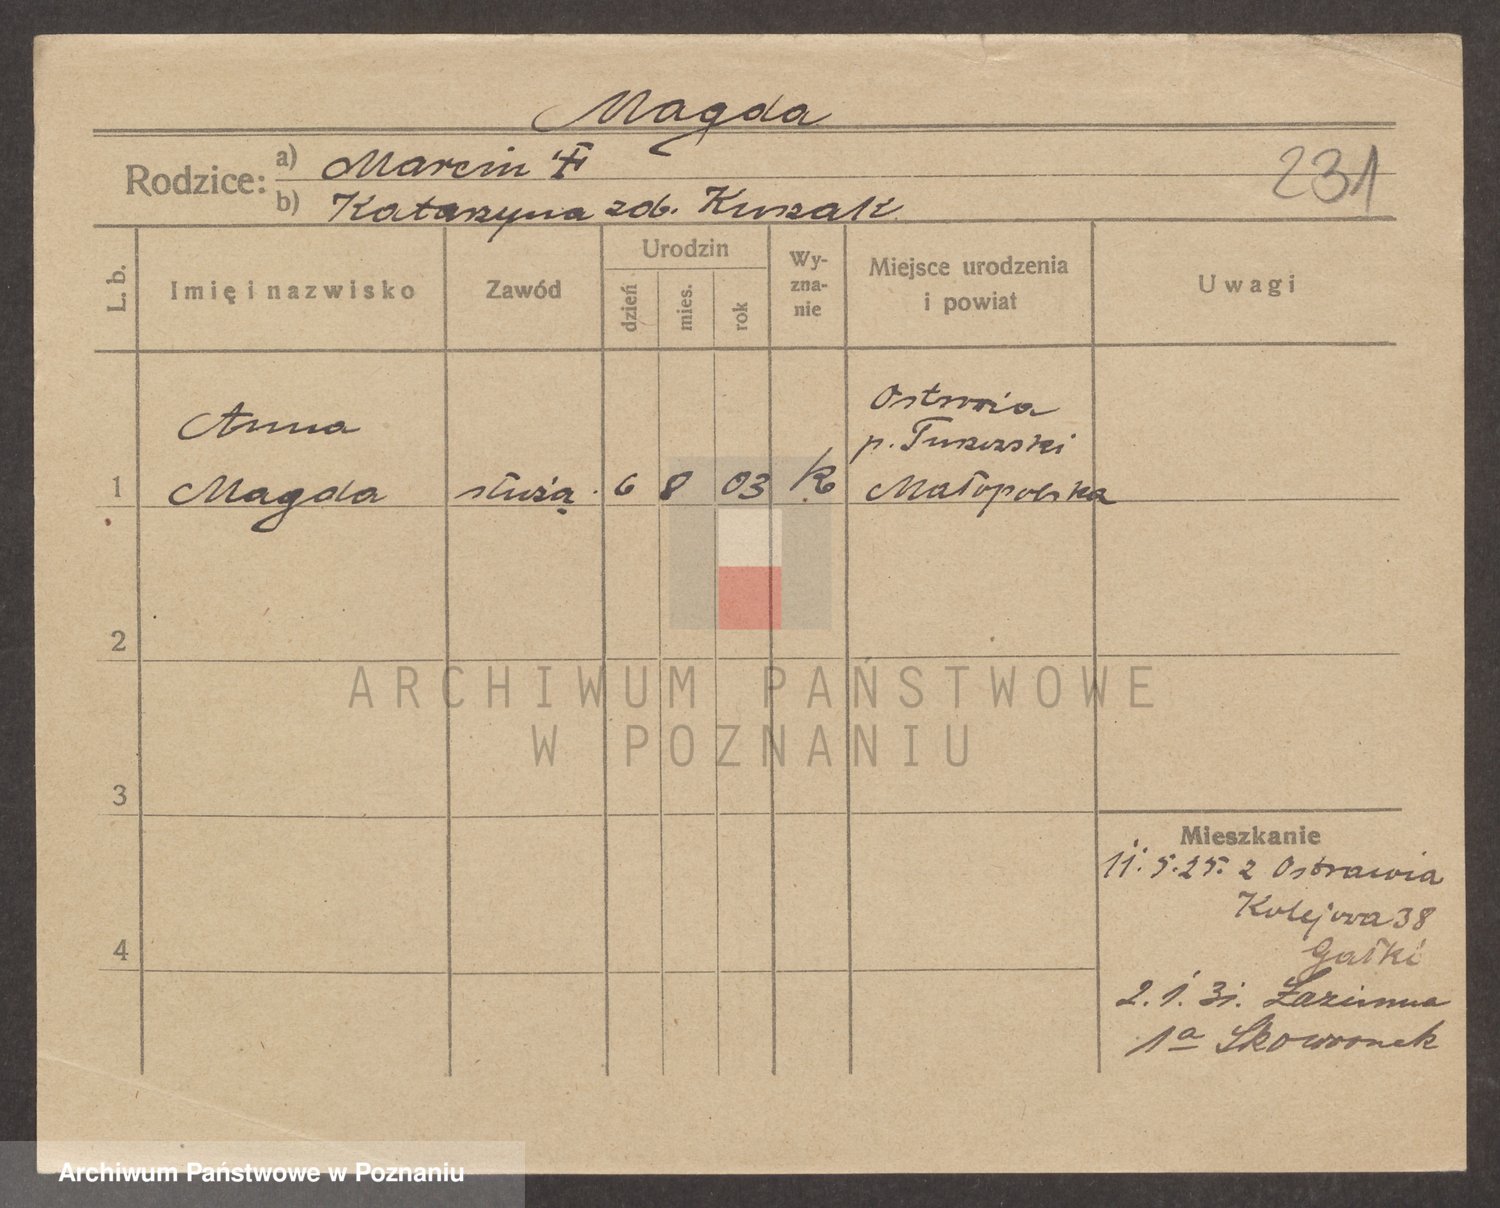 Magda
Rodzice: a) Marcin
b) Katarzyna zd. Kuszak
231
L. b.
Imię i nazwisko
Zawód
Urodzin
dzień
mies.
rok
Wy-
zna-
nie
Miejsce urodzenia
i powiat
Uwagi
Anna
Ostrwia
p. Turzski
1 Magda służą. 6 8 03 K Małopolska
2
ARCHIWUM PAŃSTWOWE
W POZNANIU
3
Mieszkanie
11. 5. 25. z Ostrawia
Kolejowa 38
Gałki
4
2. 1. 31. Łazienna
1a Skowronek
Archiwum Państwowe w Poznaniu